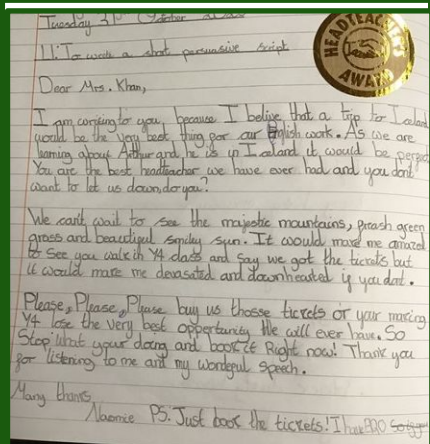 Tuesday 31st October
LI: To write a short persuasive script
HEADTEACHER
AWARD
Dear Mrs. Khan,
I am writing to you, because I belive that a trip to Iceland
would be the very best thing for our English work. As we are
learning about Arthur and he is in Iceland it would be perfect
You are the best headteacher we have ever had and you dont
want to let us down, do you?
We can't wait to see the majestic mountains, fresh green
grass and beautiful smiley sun. It would make me amazed
to see you walk in Y4 class and say we got the tickets but
it would make me devasated and downhearted if you dont.
Please, Please, Please buy us thosse tickets or your making
Y4 lose the very best opportunity We will ever have. So
Stop What your doing and book it Right now! Thank you
for listening to me and my wonderful speech.
Many thanks
Naomie PS. Just book the tickets! I have